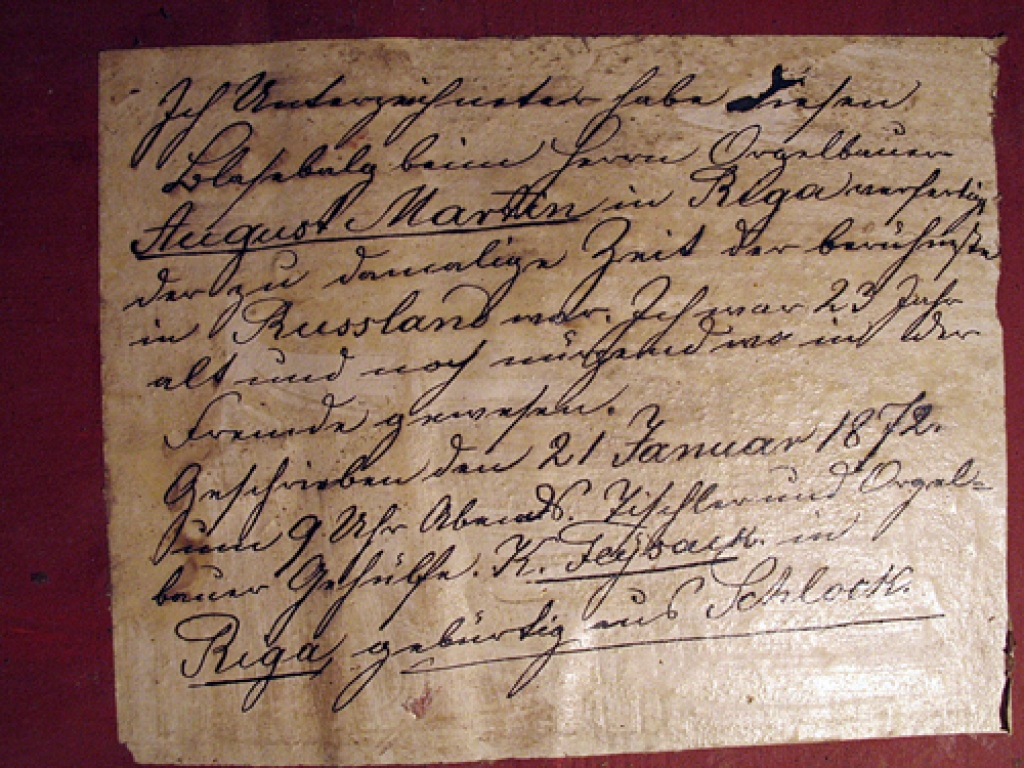 Ich Unterzeichneter habe diesen
Blasebalg beim Herrn Orgelbauer
August Martin in Riga verfertig
der zu damalige Zeit der berühmste
in Russland war. Ich war 23 Jahr
alt und noch nürgend wo in der
Fremde gewesen.
Geschrieben den 21 Januar 1872.
um 9 Uhr Abends. Tischler und Orgel=
bauer Gehülfe. K. Feysack. in
Riga, gebürtig aus Schlock.